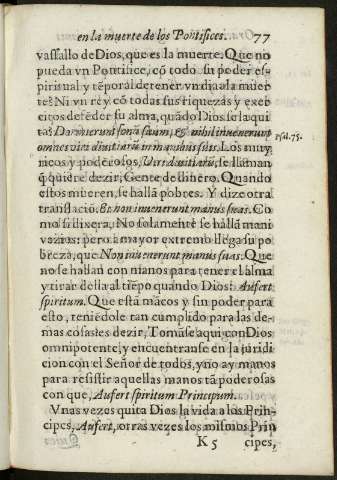 en la muerte de los Pontifices. 77
vassallo de Dios, que es la muerte. Que no
pueda vn Pontifice, cō todo su poder es-
piritual y tēporal detener vn dia a la muer
te? Ni vn rey cō todas sus riquezas y exer
citos defēder su alma, quādo Dios se la qui
ta? Dormierunt somnū suum, & nihil inuenerunt
omnes viri diuitiarū in manibus suis. Los muy
ricos y poderosos, Viri diuitiarū, se llaman
q̄ quiere dezir, Gente de dinero. Quando
estos mueren, se hallā pobres. Y dize otra
translaciō. Et non inuenerunt manus suas. Co
mo si dixera, No solamente se hallā mani
vazios: pero a mayor extremo llega su po
breza, que Non inuenerunt manus suas. Que
no se hallan con manos para tener el alma
y tirar della al tiēpo quando Dios: Aufert
spiritum. Que está mācos y sin poder para
esto, teniēdole tan cumplido para las de-
mas cosas. es dezir, Tomāse aqui con Dios
omnipotente, y encuentranse en la juridi
cion con el Señor de todos, y no ay manos
para resistir aquellas manos tā poderosas
con que, Aufert spiritum Principum.
Vnas vezes quita Dios la vida a los Prin-
cipes, Aufert, otras vezes los mismos Prin
K 5 cipes,
Psal. 75.